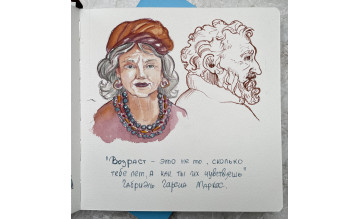 "Возраст - это не то, сколько
тебе лет, а как ты их чувствуешь"
Габриэль Гарсиа Маркес.